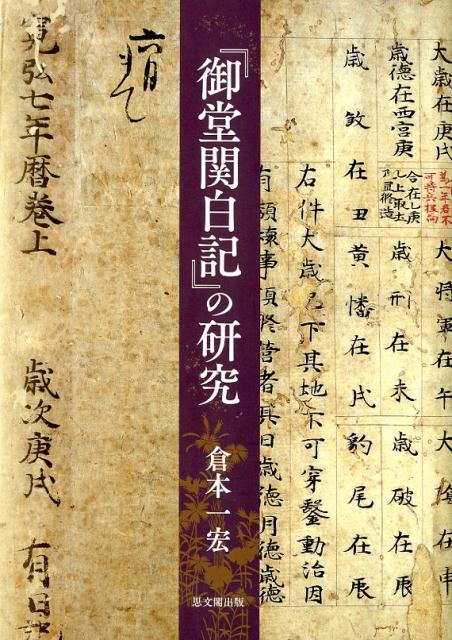 『御堂関白記』の研究
倉本一宏
思文閣出版
大歳在庚戌
大将軍在午
大陰在申
歳徳在西宮庚
合在乙庚
上取土
歳刑在未
歳破在辰
歳殺在丑
黄幡在戌
豹尾在辰
右件大歳已下其地不可穿鑿動治因
有頽壊事須修営者其日歳徳月徳歳徳
寛弘七年暦巻上
歳次庚戌
有日